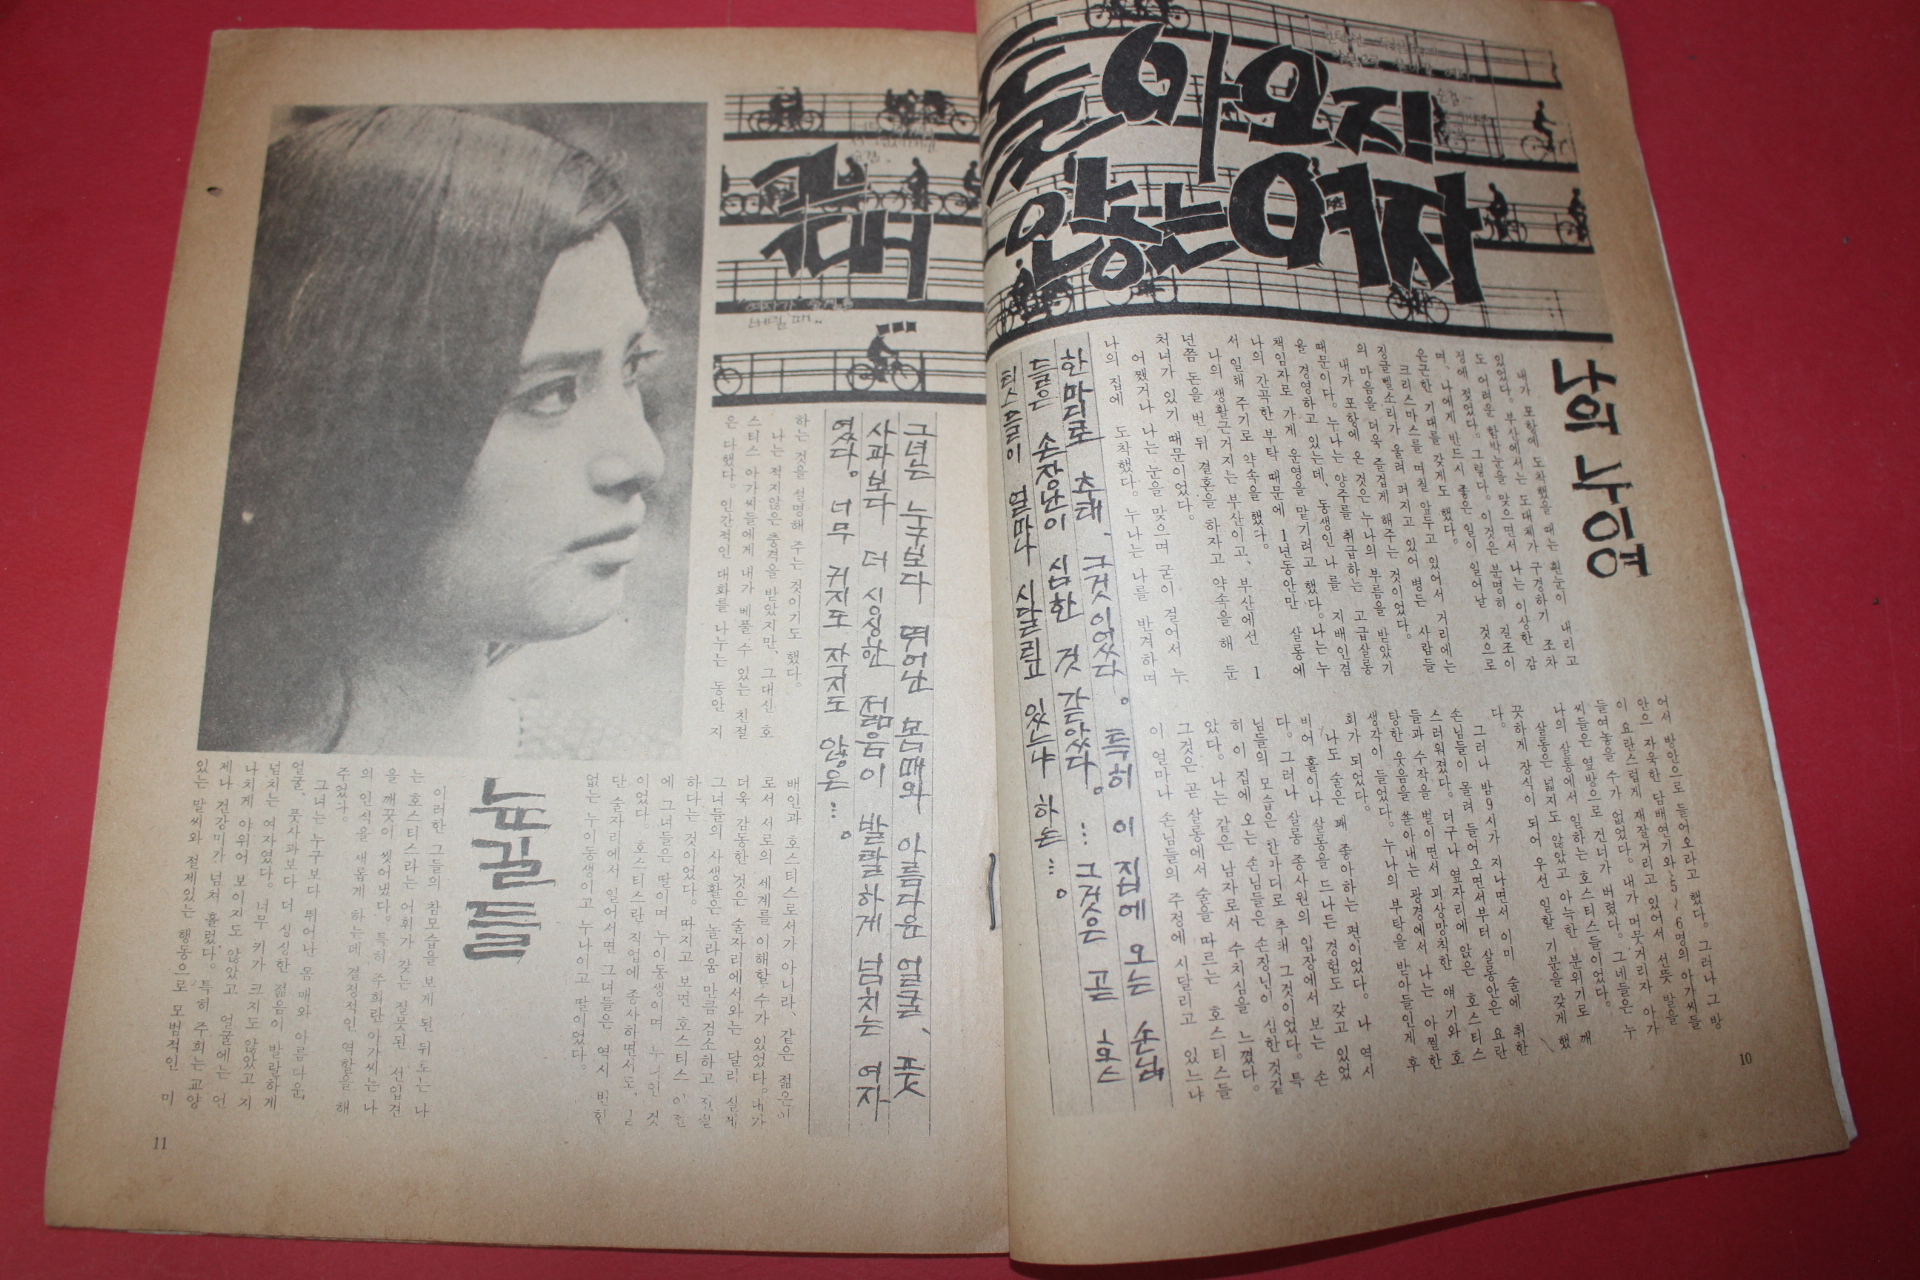 돌아오지
않는 여자
그대
여자가 순결을
버릴 때..
나의 누이여
내가 포항에 도착했을 때는 흰눈이 내리고
있었다. 부산에서는 도대체가 구경하기 조차
도 어려운 함박눈을 맞으면서 나는 이상한 감
정에 젖었다. 그렇다. 이것은 분명히 길조이
며, 나에게 반드시 좋은 일이 일어날 것으로
은근한 기대를 갖게도 했다.
크리스마스를 며칠 앞두고 있어서 거리에는
징글벨소리가 울려 퍼지고 있어 병든 사람들
의 마음을 더욱 즐겁게 해주는 것이었다.
내가 포항에 온 것은 누나의 부름을 받았기
때문이다. 누나는 양주를 취급하는 고급살롱
을 경영하고 있는데, 동생인 나를 지배인겸
책임자로 가게 운영을 맡기려고 했다. 나는 누
나의 간곡한 부탁 때문에 1년동안만 살롱에
서 일해 주기로 약속을 했다.
나의 생활근거지는 부산이고, 부산에선 1
년쯤 돈을 번 뒤 결혼을 하자고 약속을 해 둔
처녀가 있기 때문이었다.
어쨌거나 나는 눈을 맞으며 굳이 걸어서 누
나의 집에 도착했다. 누나는 나를 반겨하며
어서 방안으로 들어오라고 했다. 그러나 그 방
안은 자욱한 담배연기와 5~6명의 아가씨들
이 요란스럽게 재잘거리고 있어서 선뜻 발을
들여놓을 수가 없었다. 내가 머뭇거리자 아가
씨들은 옆방으로 건너가 버렸다. 그네들은 누
나의 살롱에서 일하는 호스티스들이었다.
살롱은 넓지도 않았고 아늑한 분위기로 깨
끗하게 장식이 되어 우선 일할 기분을 갖게 했
다.
그러나 밤9시가 지나면서 이미 술에 취한
손님들이 몰려 들어오면서부터 살롱안은 요란
스러워졌다. 더구나 옆자리에 앉은 호스티스
들과 수작을 벌이면서 괴상망칙한 얘기와 호
탕한 웃음을 쏟아내는 광경에서 나는 아찔한
생각이 들었다. 누나의 부탁을 받아들인게 후
회가 되었다.
나도 술은 꽤 좋아하는 편이었다. 나 역시
비어 홀이나 살롱을 드나든 경험도 갖고 있었
다. 그러나 살롱 종사원의 입장에서 보는 손
님들의 모습은 한마디로 추태 그것이었다. 특
히 이 집에 오는 손님들은 손장난이 심한것같
았다. 나는 같은 남자로서 수치심을 느꼈다.
그것은 곧 살롱에서 술을 따르는 호스티스들
이 얼마나 손님들의 주정에 시달리고 있느냐
한마디로 추태, 그것이었다. 특히 이 집에 오는 손님
들은 손장난이 심한 것 같았다. … 그것은 곧 호스
티스들이 얼마나 시달리고 있느냐 하는…。
10
하는 것을 설명해 주는 것이기도 했다.
나는 적지않은 충격을 받았지만, 그대신 호
스티스 아가씨들에게 내가 베풀 수 있는 친절
은 다했다. 인간적인 대화를 나누는 동안 지
배인과 호스티스로서가 아니라, 같은 젊은이
로서 서로의 세계를 이해할 수가 있었다. 내가
더욱 감동한 것은 술자리에서와는 달리 실제
그녀들의 사생활은 놀라움 만큼 검소하고 진실
하다는 것이었다. 따지고 보면 호스티스 이전
에 그녀들은 딸이며 누이동생이며 누나인 것
이었다. 호스티스란 직업에 종사하면서도, 일
단 술자리에서 일어서면 그녀들은 역시 변함
없는 누이동생이고 누나이고 딸이었다.
그녀는 누구보다 뛰어난 몸매와 아름다운 얼굴, 풋
사과보다 더 싱싱한 젊음이 발랄하게 넘치는 여자
였다. 너무 키지도 작지도 않은…。
눈길들
이러한 그들의 참모습을 보게 된 뒤로는 나
는 호스티스라는 어휘가 갖는 잘못된 선입견
을 깨끗이 씻어냈다. 특히 주희란 아가씨는 나
의 인식을 새롭게 하는데 결정적인 역할을 해
주었다.
그녀는 누구보다 뛰어난 몸 매와 아름다운
얼굴, 풋사과보다 더 싱싱한 젊음이 발랄하게
넘치는 여자였다. 너무 키가 크지도 않았고 지
나치게 야위어 보이지도 않았고 얼굴에는 언
제나 건강미가 넘쳐 흘렀다. 특히 주희는 교양
있는 말씨와 절제있는 행동으로 모범적인 미
11